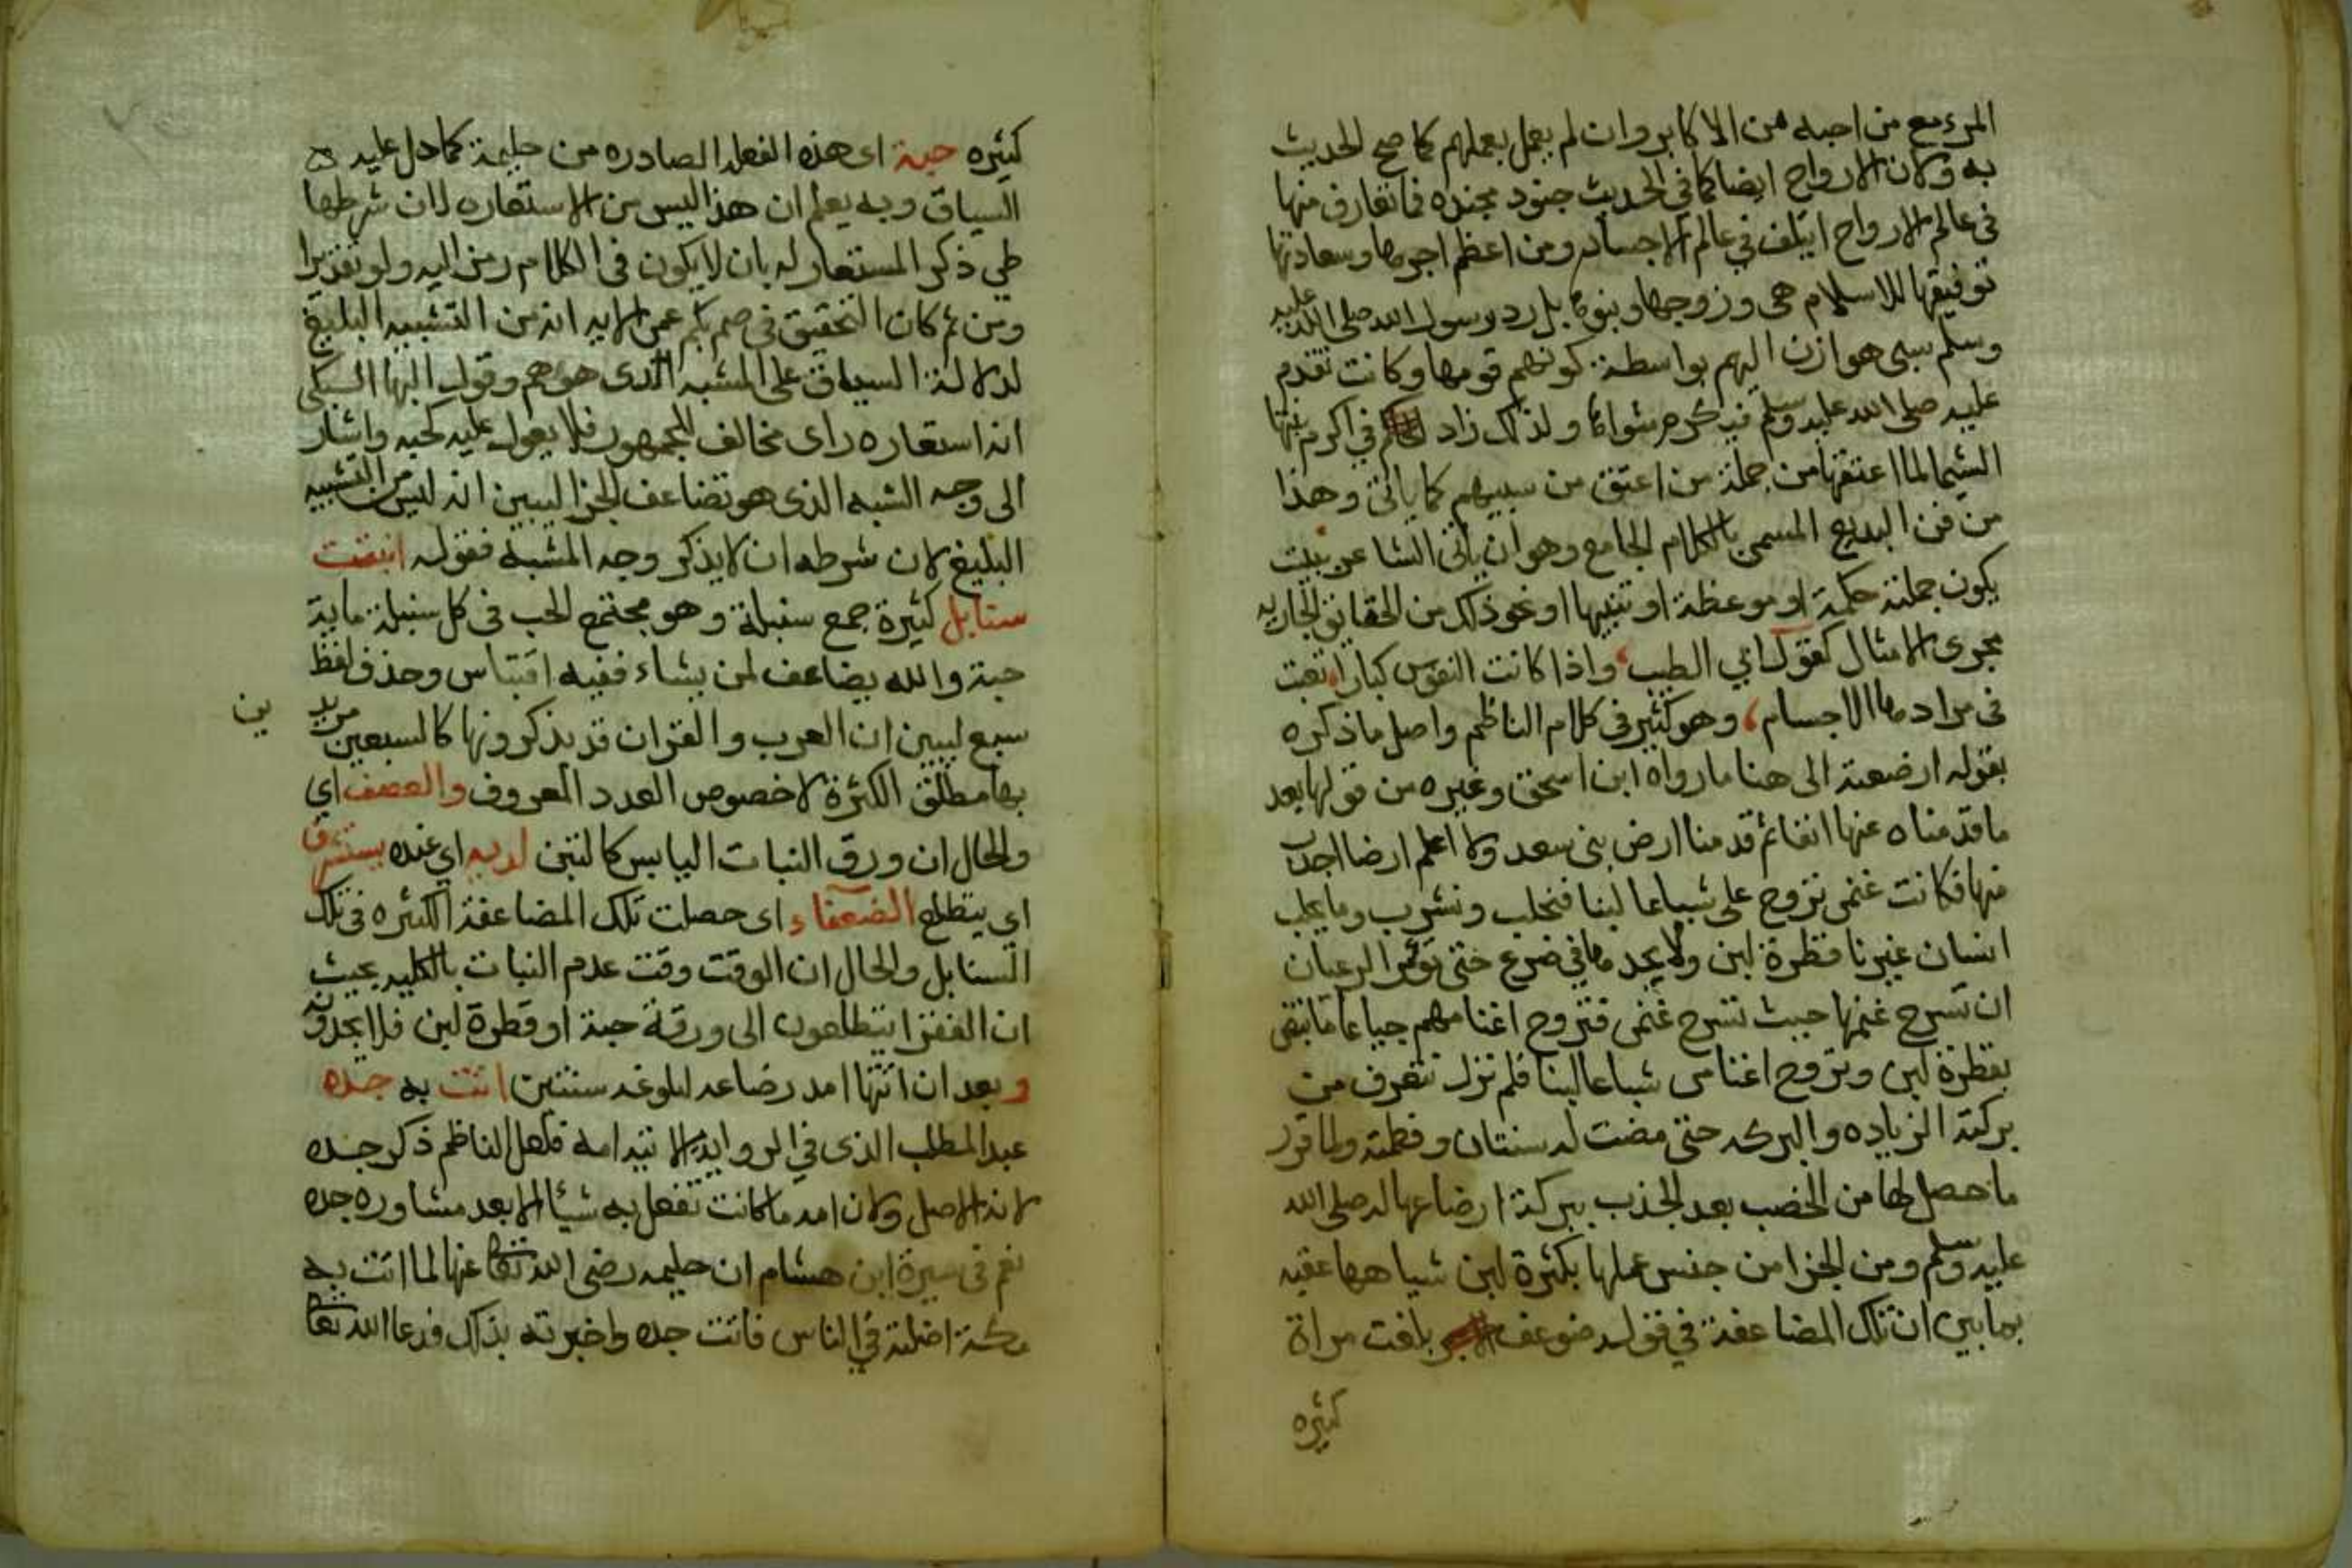 المرء مع من احبه من الاكابر وان لم يعمل بعملهم كما صح الحديث
به وكان الارواح ايضا كما في الحديث جنود مجنده فما تعارف منها
في عالم الارواح ايتلف في عالم الاجساد ومن اعظم اجرها وسعادتها
توفيقها للاسلام هي وزوجها وبنوها بل رد رسول الله صلى الله عليه
وسلم سبي هوازن اليهم بواسطة كونهم قومها وكانت تقدم
عليه صلى الله عليه وسلم فيكرم مثواها ولذلك زاد في اكرم بنتها
الشيما لما اعتقها من جملة من اعتق من سبيهم كما ياتي وهذا
من فن البديع المسمى بالكلام الجامع وهو ان ياتي الشاعر ببيت
يكون جملته حكمة او موعظة او تنبيها او نحو ذلك من الحقايق الجاريه
مجرى الامثال كقول ابي الطيب واذا كانت النفوس كبارا تعبت
في مرادها الاجسام وهو كثير في كلام الناظم واصل ما ذكره
بقوله ارضعته الى هنا ما رواه ابن اسحق وغيره من قولها بعد
ما قدمناه عنها انفا ثم قدمنا ارض بني سعد ولا اعلم ارضا اجدب
منها فكانت غنمي تروح علي شباعا لبنا فنحلب ونشرب وما يحلب
انسان غيرنا قطرة لبن ولا يجدها في ضرع حتى يومر الرعيان
ان تسرح غنمها حيث تسرح غنمي فتروح اغنامهم جياعا ما تبقى
بقطرة لبن وتروح اغنامي شباعا لبنا فلم نزل نتعرف من
بركته الزياده والبركه حتى مضت له سنتان وفطمته ولما قرر
ما حصل لها من الخصب بعد الجذب ببركة ارضاعها له صلى الله
عليه وسلم ومن الجزا من جنس عملها بكثرة لبن شياهها عقبه
بما يبين ان تلك المضاعفة في قوله ضوعف بلغت مراة
كثيره
كثيره حبة اى هذه الفعله الصادره من حليمة كما دل عليه
السياق وبه يعلم ان هذا ليس من الاستعاره لان شرطها
طي ذكر المستعار له بان لا يكون في الكلام رمز اليه ولو تقديرا
ومن ثم كان التحقيق في صم بكم عمي الايه انه من التشبيه البليغ
لدلالة السياق على المشبه الذى هو هم وقول البها السبكي
انه استعاره راى مخالف للجمهور فلا يعول عليه كحبه واشار
الى وجه الشبه الذى هو تضاعف الجزا ليبين انه ليس من التشبيه
البليغ لان شرطه ان لا يذكر وجه المشبه فقوله انبتت
سنابل كثيرة جمع سنبلة وهو مجتمع الحب في كل سنبلة ماية
حبة والله يضاعف لمن يشاء ففيه اقتباس وحذف لفظ
سبع ليبين ان العرب والقران قد يذكرونها كالسبعين مريد
ين
بها مطلق الكثرة لا خصوص العدد المعروف والعصف اي
والحال ان ورق النبات اليابس كالتبن لديه اي عنده يستشرف
اى يتطلع الضعفاء اى حصلت تلك المضاعفة الكثيره في تلك
السنابل والحال ان الوقت وقت عدم النبات بالكليه بحيث
ان الفقرا يتطلعون الى ورقة حبة او قطرة لبن فلا يجدونه
وبعد ان انتها امد رضاعه لبلوغه سنتين اتت به جده
عبد المطلب الذى في الروايه الاتيه امه فلعل الناظم ذكر جده
لانه الاصل ولان امه ما كانت تفعل به شيئا الا بعد مشاوره جده
نعم في سيرة ابن هشام ان حليمه رضى الله تعا عنها لما اتت به
مكة اضلته في الناس فاتت جده واخبرته بذلك فدعا الله تعا